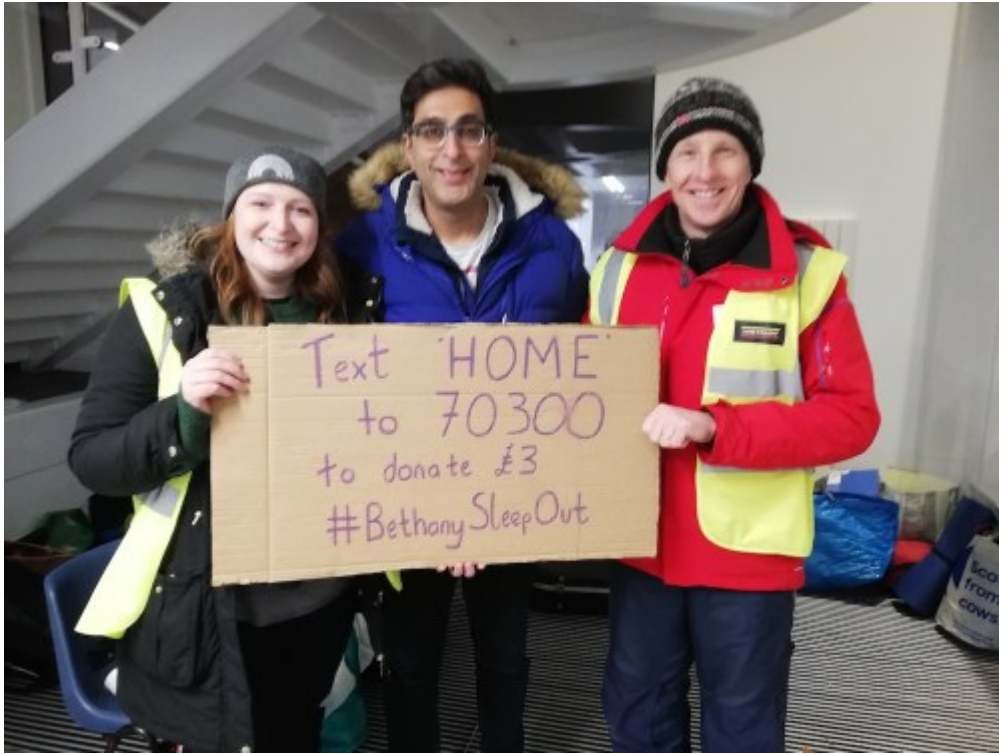 Text 'HOME'
to 70300
to donate £3
#BethanySleepOut
Sco
from
cows